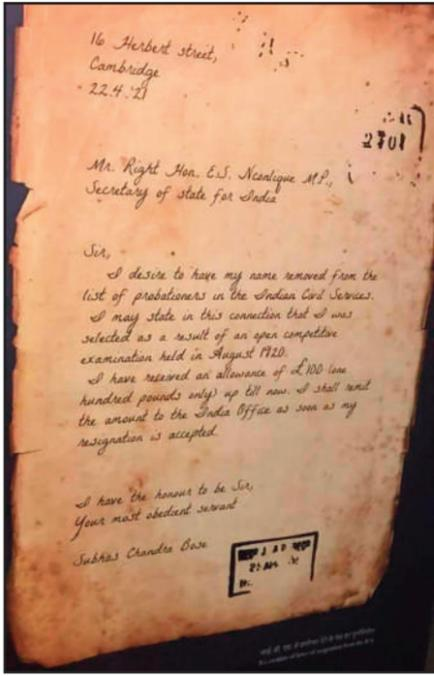 16 Herbert street,
Cambridge
22.4.'21
2701
Mr. Right Hon. E.S. Nconlique M.P.,
Secretary of state for India
Sir,
I desire to have my name removed from the
list of probationers in the Indian Civil Services.
I may state in this connection that I was
selected as a result of an open competitive
examination held in August 1920.
I have received an allowance of £100 (one
hundred pounds only) up till now. I shall remit
the amount to the India Office as soon as my
resignation is accepted.
I have the honour to be Sir,
Your most obedient servant
Subhas Chandra Bose